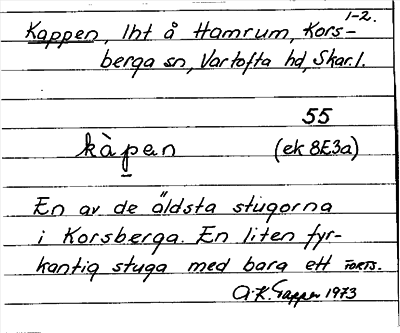 1-2.
Kappen, lht å Hamrum, Kors-
berga sn, Vartofta hd, Skar.l.
55
kàpen (ek 8E3a)
En av de äldsta stugorna
i Korsberga. En liten fyr-
kantig stuga med bara ett FORTS.
A.K. 1973